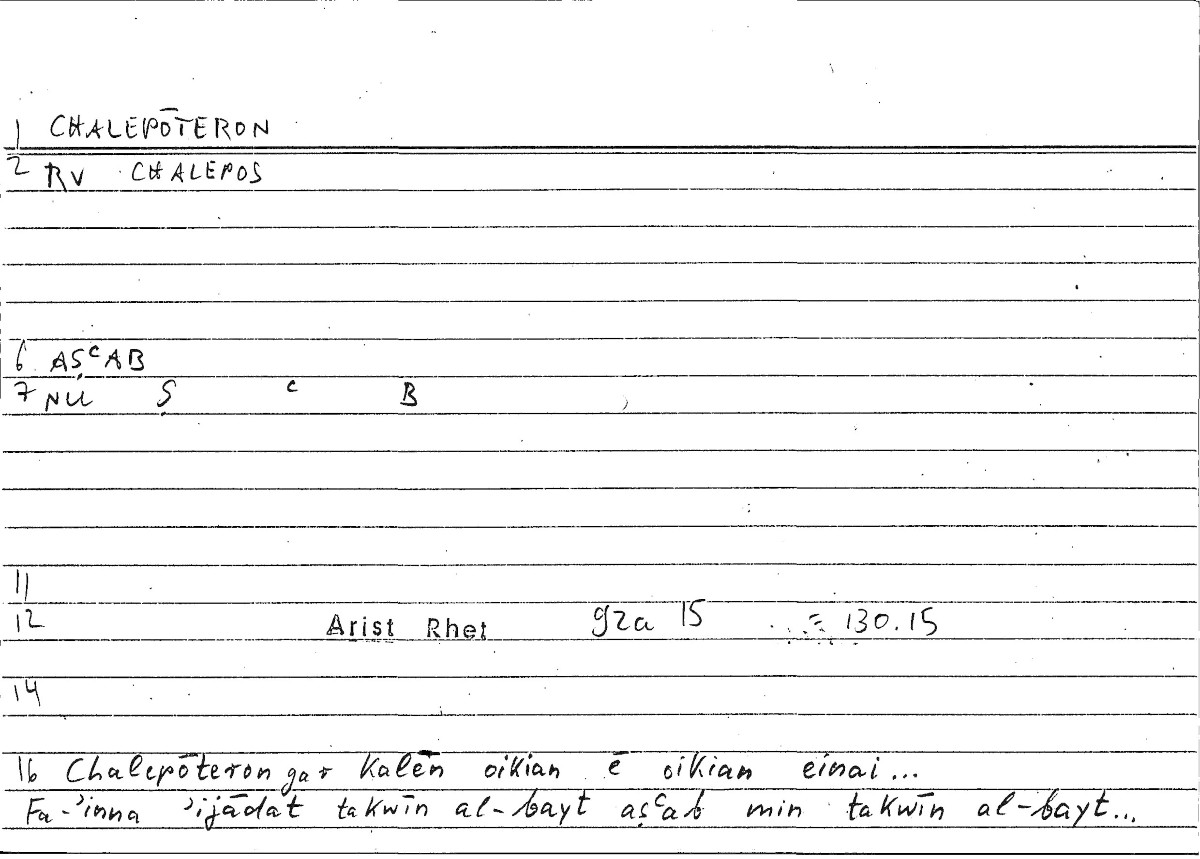 1 CHALEPŌTERON
2 RV CHALEPOS
6 AṢᶜAB
7 NU Ṣ ᶜ B
11
12 Arist Rhet 92a 15 = 130.15
14
16 Chalepōteron gar kalēn oikian ē oikian einai...
Fa-ʾinna ʾijādat takwīn al-bayt aṣᶜab min takwīn al-bayt...